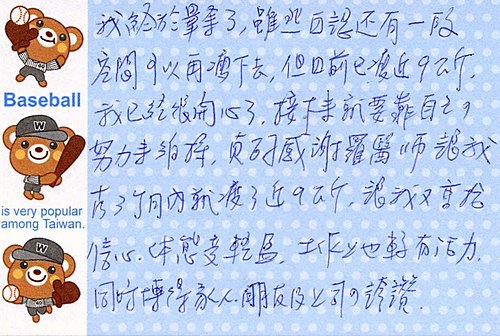 我終於畢業了,雖然自認還有一段
空間可以再瘦下去,但目前已瘦近9公斤,
我已經很開心了,接下來就要靠自己的
努力來維持,真的感謝羅醫師讓我
在3個月內就瘦了近9公斤,讓我又重拾
信心,体態變輕盈,工作上也較有活力,
同時博得家人、朋友及公司的誇讚.
Baseball
is very popular
among Taiwan.
W
W